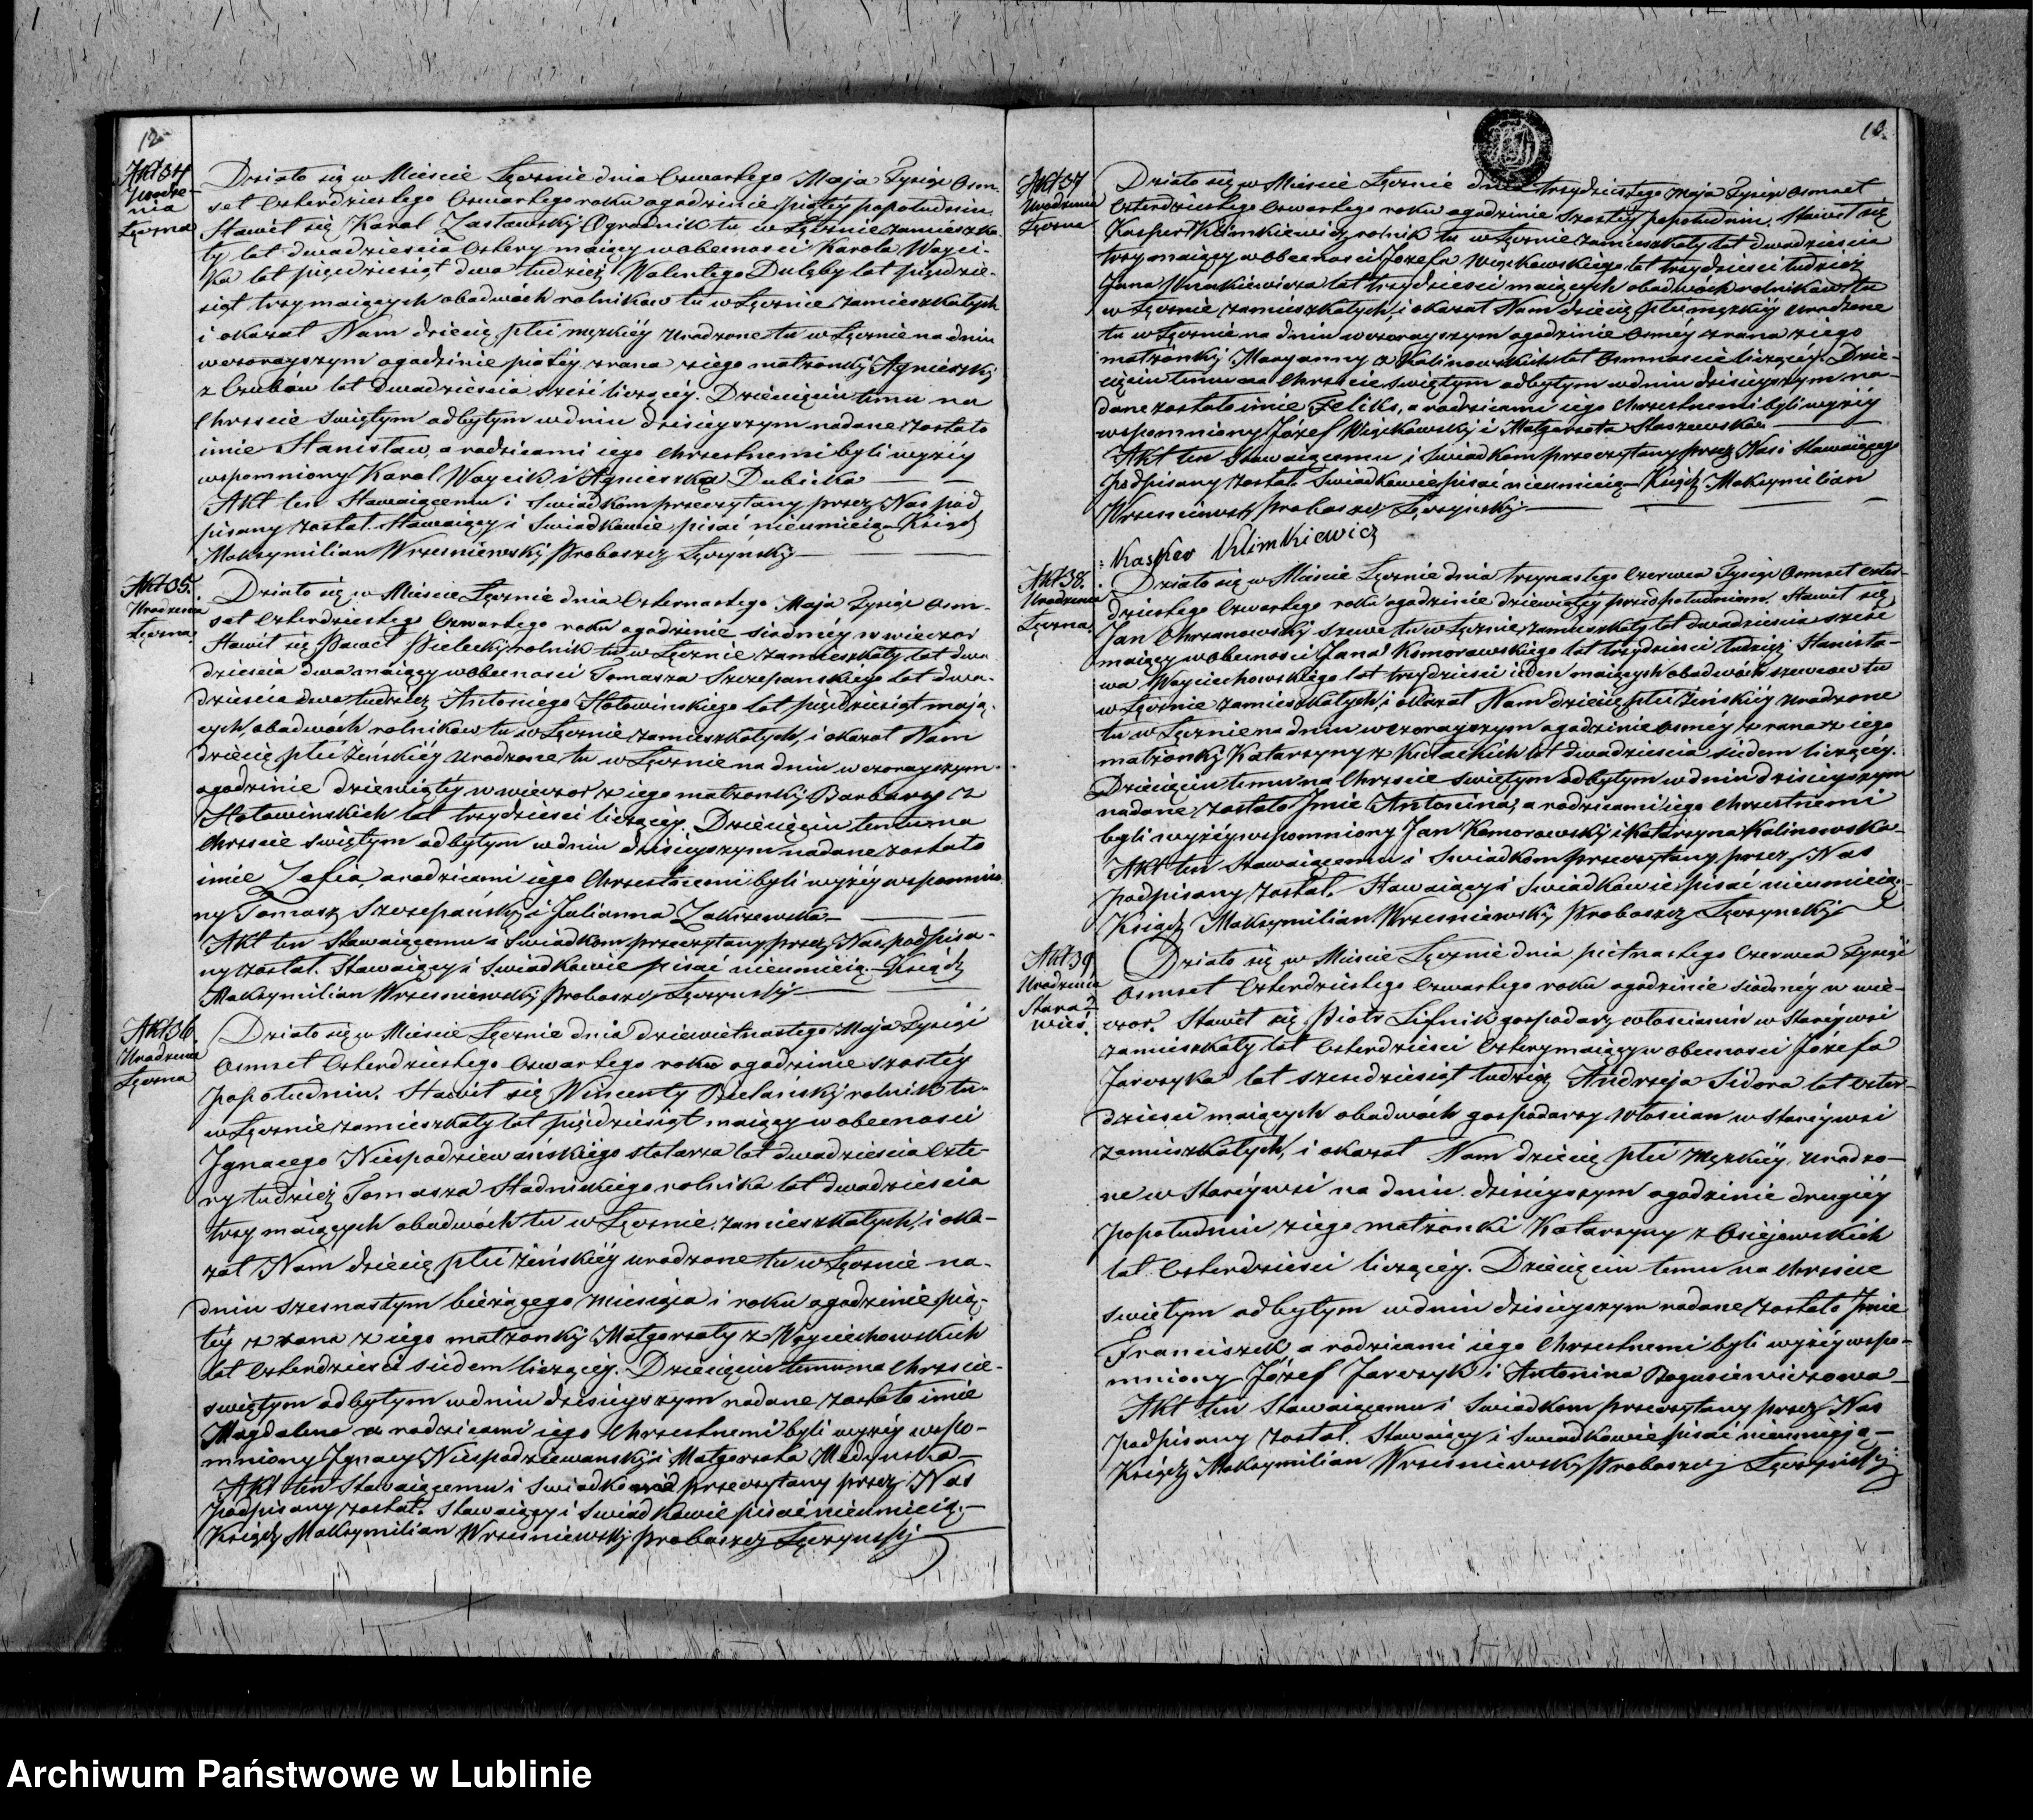 12
Akt 34
Urodze-
nia
Łęczna
Działo się w Mieście Łęcznie dnia Czwartego Maja Tysiąc Osm-
set Czterdziestego Czwartego roku ogodzinie piątey popołudniu.
Stawił się Karol Zasławski Ogrodnik tu w Łęcznie zamieszka-
ły lat dwadzieścia Cztery maiący w obecnosci Karola Woyci-
ka lat pięcdziesiąt dwa tudzież Walentego Dulęby lat pięcdzie-
siąt trzy maiących obudwóch rolnikow tu w Łęcznie zamieszkałych
i okazał Nam dziecię płci męzkiéy urodzone tu w Łęcznie na dniu
wczorayszym ogodzinie piątéy zrana z iego małzonki Agnieszki
z Czubów lat dwadziescia sześć liczącéy. Dziecięciu temu na
Chrzcie Swiętym odbytym w dniu dzisieyszym nadane zostało
imie Stanisław, a rodzicami iego Chrzestnemi byli wyżéy
wspomniony Karol Woycik i Agnieszka Dubicka
Akt ten Stawaiącemu i Swiadkom przeczytany przez Nas pod
pisany został. Stawaiący i Swiadkowie pisać nieumieią Ksiądz
Maksymilian Wrzesniewski Proboszcz Łęczyński
Akt 35.
Urodzenia
Łęczna.
Działo się w Mieście Łęcznie dnia Czternastego Maja Tysiąc Osm-
set Czterdziestego Czwartego roku ogodzinie siodméy w wieczor
Stawił się Pielecki rolnik tu w Łęcznie zamieszkały lat dwa
dziescia dwa maiący w obecnosci Tomasza Szczepanskiego lat dwa-
dziescia dwa tudzież Antoniego Hołowinskiego lat pięcdziesiąt mają-
cych, obudwóch rolnikow tu w Łęcznie zamieszkałych, i okazał Nam
dziecię płci żeńskiéy urodzone tu w Łęcznie na dniu wczorayszym
ogodzinie dziewiątéy w wieczor z iego małzonki Barbary z
Hołowinskich lat trzydziesci liczącéy. Dziecięciu temu na
Chrzcie Swiętym odbytym w dniu dzisieyszym nadane zostało
imie Zofia, a rodzicami iego Chrzestnemi byli wyżéy wspomnio
ny Tomasz Szczepański i Julianna Zakrzewska
Akt ten Stawaiącemu i Swiadkom przeczytany przez Nas podpisa-
ny został. Stawaiący i Swiadkowie pisać nieumieią. Ksiądz
Maksymilian Wrzesniewski Proboszcz Łęczyński
Akt 36.
Urodzenia
Łęczna
Działo się w Mieście Łęcznie dnia dziewiętnastego Maja Tysiąc
Osmset Czterdziestego Czwartego roku ogodzinie szostéy
popołudniu. Stawił się Wincenty Bielański rolnik tu
w Łęcznie zamieszkały lat pięcdziesiąt maiący w obecnosci
Jgnacego Niespodziewańskiego stolarza lat dwadziescia Czte-
ry tudzież Tomasza Stadnickiego rolnika lat dwadziescia
trzy maiących obudwóch tu w Łęcznie zamieszkałych, i oka-
zał Nam dziecię płci żeńskiéy urodzone tu w Łęcznie na-
dniu szesnastym bieżącego miesiąca i roku ogodzinie pią-
téy z rana z iego małzonki Małgorzaty z Woyciechowskich
lat Czterdziesci siedem liczącéy. Dziecięciu temu na Chrzcie-
swiętym odbytym w dniu dzisieyszym nadane zostało imie
Magdalena a rodzicami iego Chrzestnemi byli wyzéy wspo-
mniony Jgnacy Niespodziewanski i Małgorzata
Akt ten Stawaiącemu i Swiadkom przeczytany przez Nas
podpisany został. Stawaiący i Swiadkowie pisać nieumieią.
Ksiądz Maksymilian Wrzesniewski Proboszcz Łęczyński
13.
Akt 37
Urodzenia
Łęczna
Działo się w Mieście Łęcznie dnia trzydziestego Maja Tysiąc Osmset
Czterdziestego Czwartego roku ogodzinie Szostéy popołudniu. Stawił się
Kasper Klimkiewicz rolnik tu w Łęcznie zamieszkały lat dwadziescia
trzy maiący w obecnosci Jozefa Więckowskiego lat trzydziesci tudzież
Jana lat trzydziesci maiących obudwóch rolnikow tu
w Łęcznie zamieszkałych, i okazał Nam dziecię płci męzkiéy urodzone
tu w Łęcznie na dniu wczorayszym ogodzinie osméy zrana z iego
małzonki Maryanny z Kalinowskich lat Osmnascie liczącéy. Dzie-
cięciu temu na Chrzcie Swiętym odbytym w dniu dzisieyszym na-
dane zostało imie Feliks, a rodzicami iego Chrzestnemi byli wyzéy
wspomniony Józef Więckowski i Małgorzata Staszewska
Akt ten Stawaiącemu i Swiadkom przeczytany przez Nas i Stawaiącego
podpisany został. Swiadkowie pisać nieumieią Ksiądz Maksymilian
Wrzesniewski Proboszcz Łęczyński
Kasper Klimkiewicz
Akt 38.
Urodzenia
Łęczna.
Działo się w Mieście Łęcznie dnia trzynastego Czerwca Tysiąc Osmset Czter-
dziestego Czwartego roku ogodzinie dziewiątéy przed południem. Stawił się
Jan Chrzanowski szewc tu w Łęcznie zamieszkały lat dwadziescia sześć
maiący w obecnosci Jana Komorowskiego lat trzydziesci tudzież Stanisła-
wa Woyciechowskiego lat trzydziesci ieden maiących obudwóch szewcow tu
w Łęcznie zamieszkałych, i okazał Nam dziecię płci żeńskiéy urodzone
tu w Łęcznie na dniu wczorayszym ogodzinie osméy z rana z iego
małzonki Katarzyny z lat dwadziescia siedem liczącéy.
Dziecięciu temu na Chrzcie swiętym odbytym w dniu dzisieyszym
nadane zostało Jmie Antonina, a rodzicami iego Chrzestnemi
byli wyzéy wspomniony Jan Komorowski i Katarzyna Kalinowska
Akt ten Stawaiącemu i Swiadkom przeczytany przez Nas
podpisany został. Stawaiący i Swiadkowie pisać nieumieią.
Ksiądz Maksymilian Wrzesniewski Proboszcz Łęczyński
Akt 39
Urodzenia
Stara
wieś.
Działo się w Mieście Łęcznie dnia pietnastego Czerwca Tysiąc
Osmset Czterdziestego Czwartego roku ogodzinie siodméy w wie-
czor. Stawił się Piotr Lipnik gospodarz włoscianin w Staréywsi
zamieszkały lat Czterdziesci Cztery maiący w obecnosci Józefa
Jarczyka lat szescdziesiąt tudzież Andrzeja Sidora lat czter-
dziesci maiących obudwóch gospodarzy włoscian w Staréywsi
zamieszkałych, i okazał Nam dziecię płci męzkiéy urodzo-
ne w Staréywsi na dniu dzisieyszym ogodzinie drugiéy
popołudniu z iego małzonki Katarzyny z Osiejewskich
lat Czterdziesci liczącéy. Dziecięciu temu na Chrzcie
swiętym odbytym w dniu dzisieyszym nadane zostało Jmie
Franciszek a rodzicami iego Chrzestnemi byli wyżéy wspo-
mniony Józef Jarczyk i Antonina Bogusiewiczowa
Akt ten Stawaiącemu i Swiadkom przeczytany przez Nas
podpisany został. Stawaiący i Swiadkowie pisać nieumieją
Ksiądz Maksymilian Wrzesniewski Proboszcz Łęczyński
Archiwum Państwowe w Lublinie